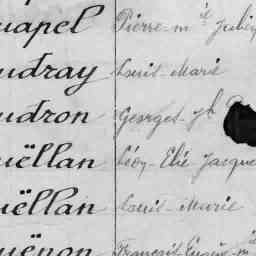 uapel Pierre-m el Julien
udray Louis-Marie
udron Georges Jh
uëllan Léon-Elie Jacque
uëllan Louis-Marie
uënon François Eugène-m